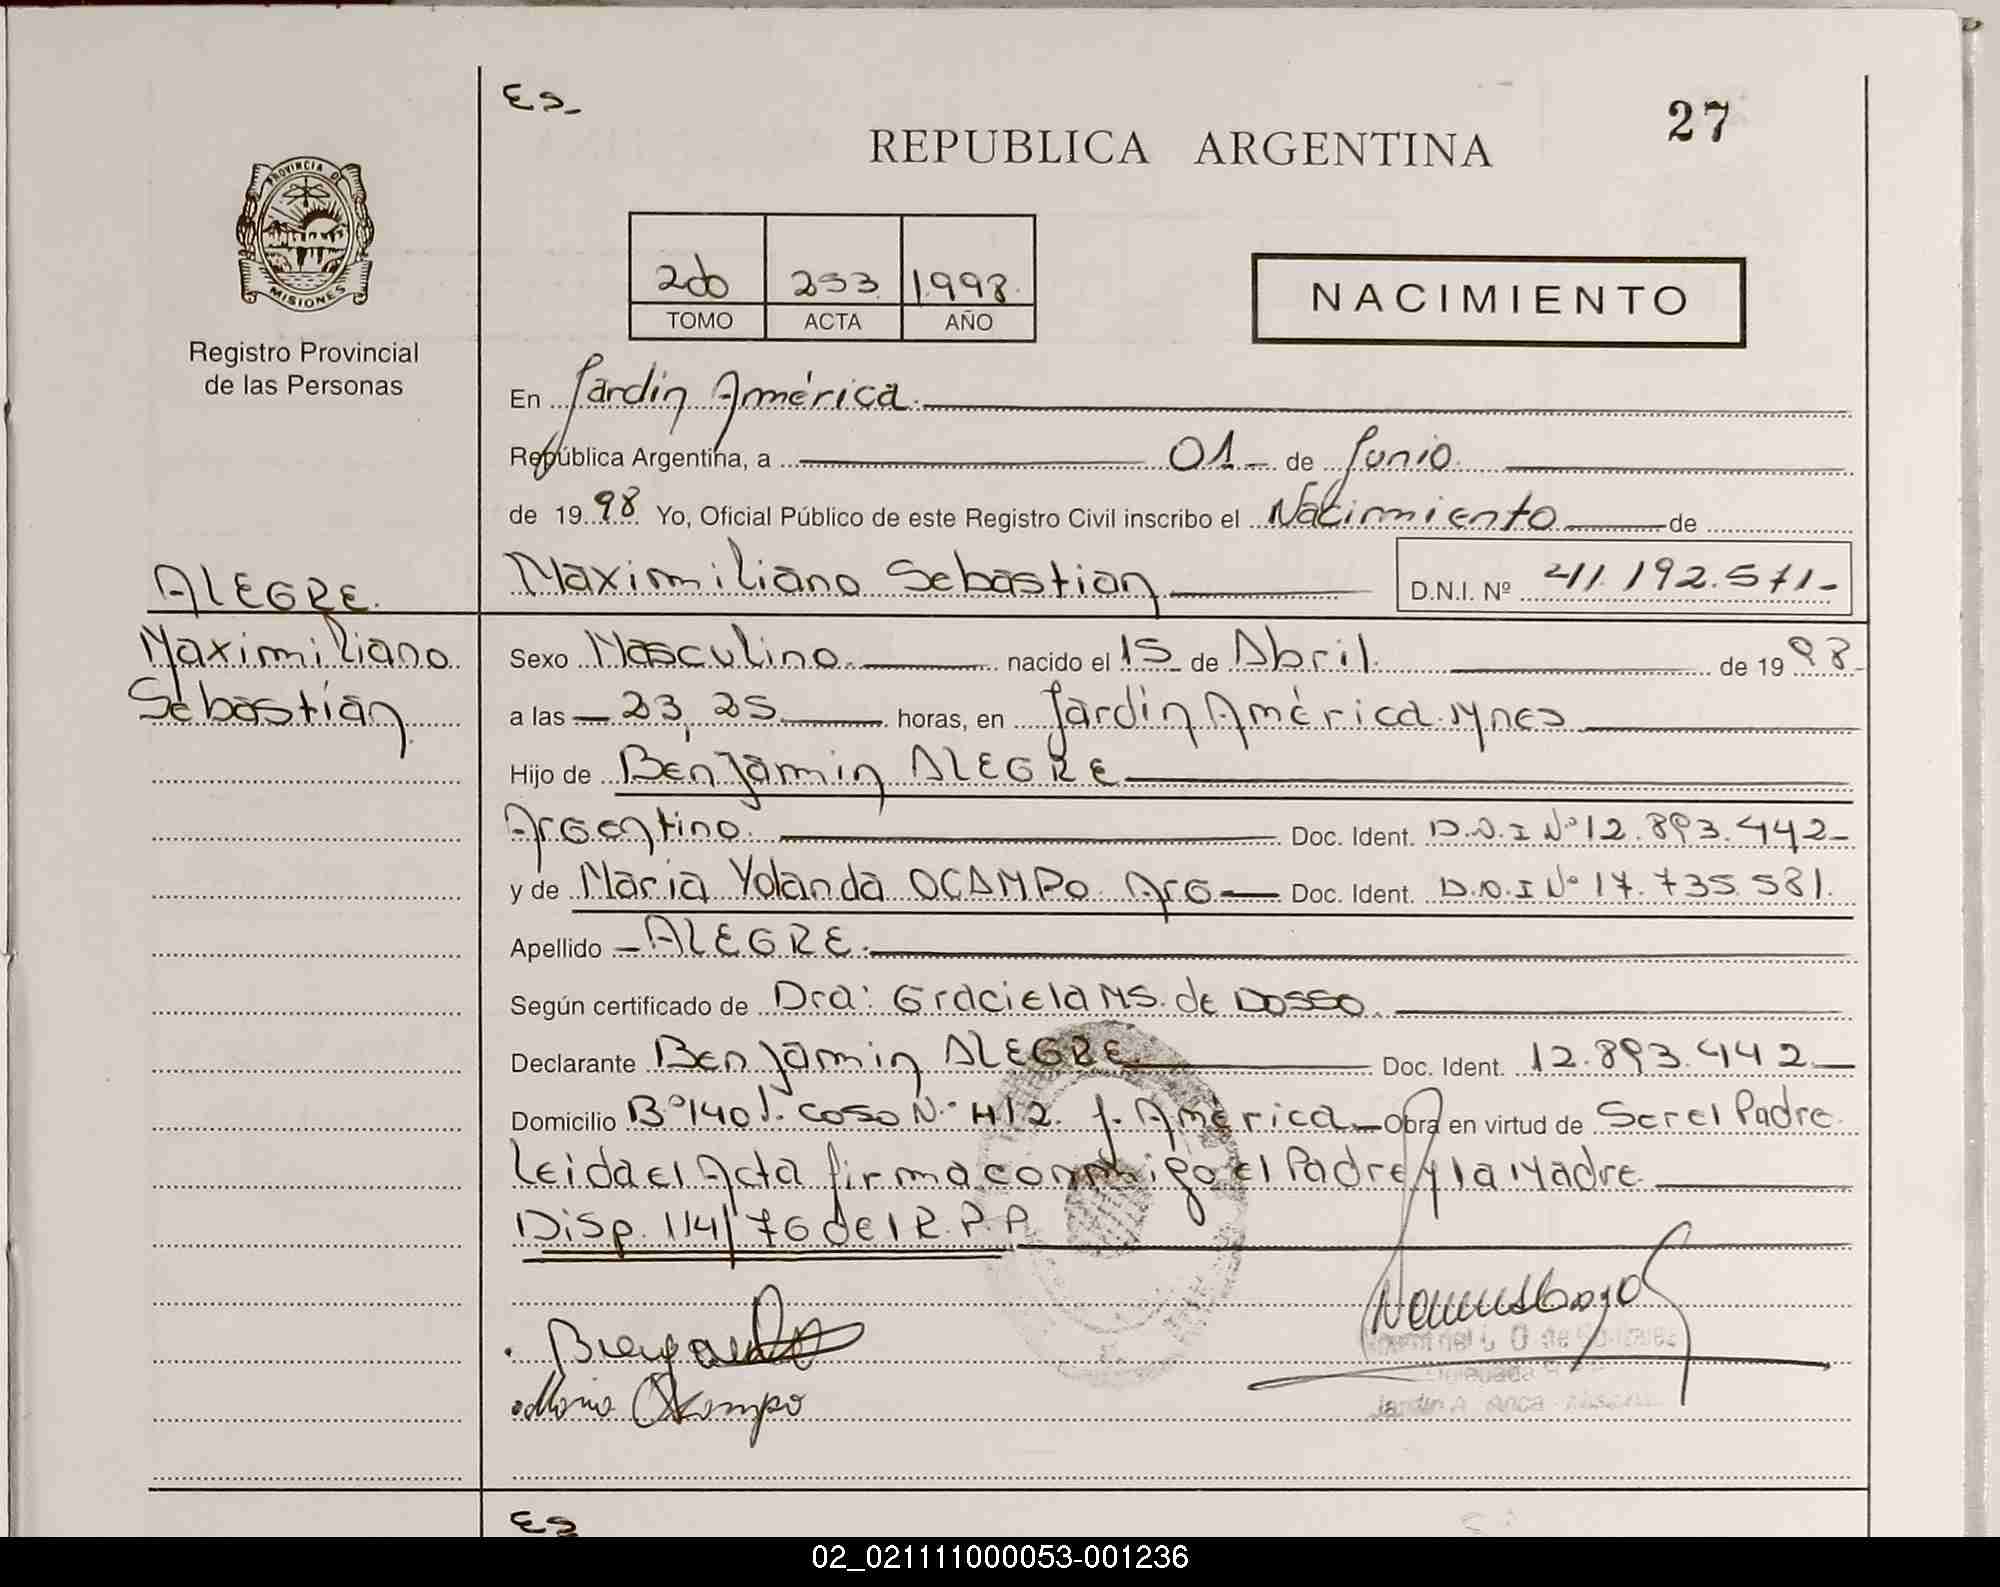 Es_
27
REPUBLICA ARGENTINA
PROVINCIA DE
MISIONES
Registro Provincial
de las Personas
2do 253 1.998.
TOMO ACTA AÑO
NACIMIENTO
En Jardín América.
República Argentina, a 01_ de Junio.
de 19 98 Yo, Oficial Público de este Registro Civil inscribo el Nacimiento de
Maximiliano Sebastian D.N.I. Nº 41.192.571-
ALEGRE.
Maximiliano
Sebastián
Sexo Masculino. nacido el 15_ de Abril. de 19 98_
a las 23,25 horas, en Jardín América. Mnes
Hijo de Benjamin ALEGRE
Argentino. Doc. Ident. D.N.I Nº 12.893.442_
y de Maria Yolanda OCAMPO. Arg Doc. Ident. D.N.I Nº 17.735.581.
Apellido ALEGRE.
Según certificado de Dra: Graciela MS. de DOSSO.
Declarante Benjamin ALEGRE Doc. Ident. 12.893.442
Domicilio Bº 140 casa N.º H12. J. América Obra en virtud de Ser el Padre.
Leida el Acta firma conmigo el Padre y la Madre.
Disp. 114/76 del R.P.P.
Maria Ocampo
Es
02_021111000053-001236